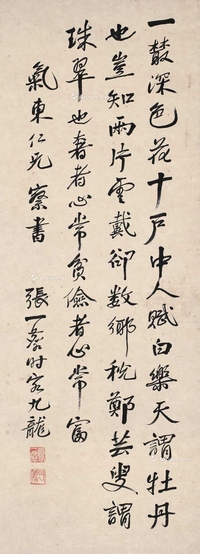 一叢深色花十戶中人賦白樂天謂牡丹
也豈知兩片雲戴卻數鄉稅鄭芸叟謂
珠翠也奢者心常貧儉者心常富
氣東仁兄察書
張一麐时客九龍